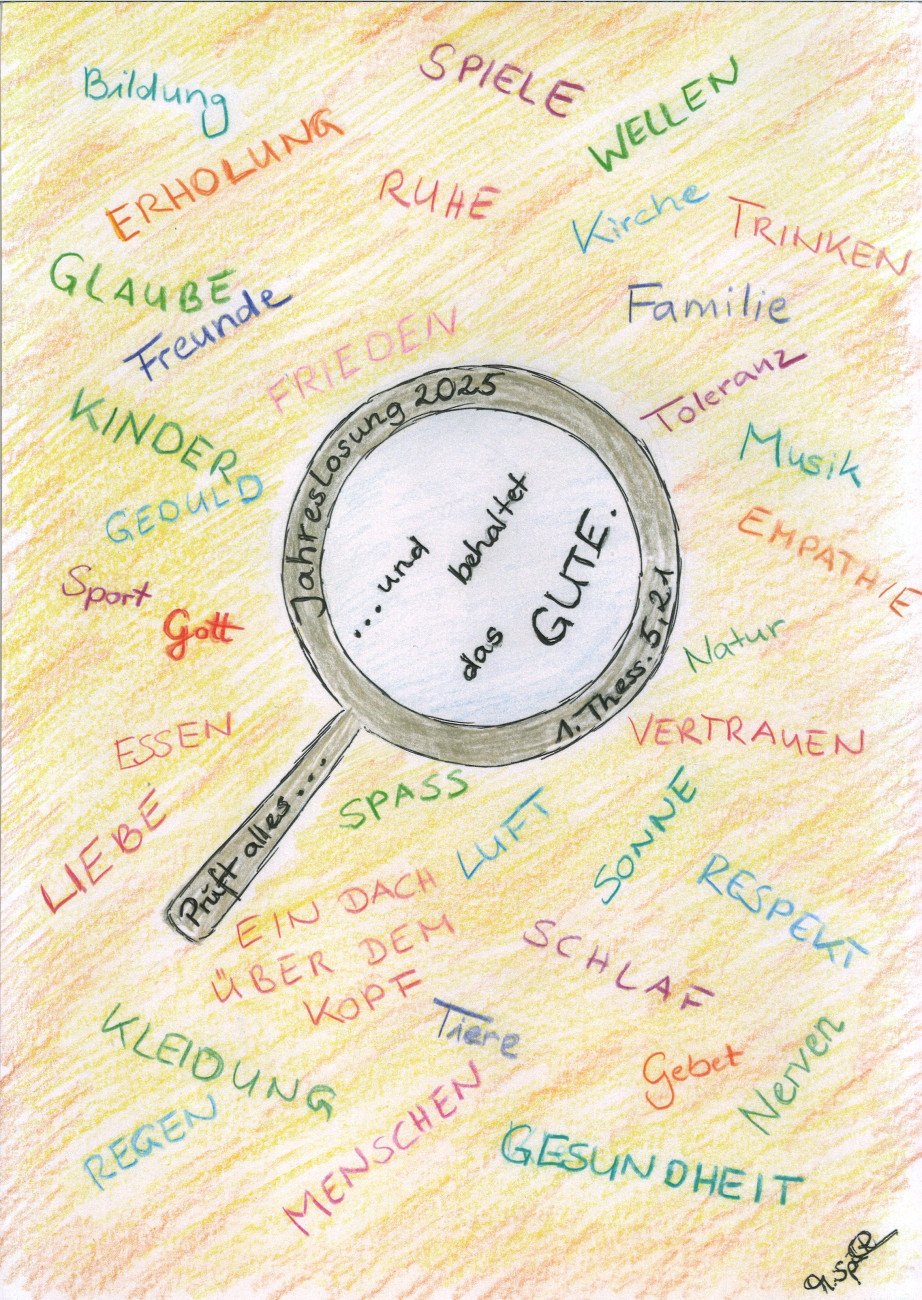 Bildung
SPIELE
WELLEN
ERHOLUNG
RUHE
Kirche
TRINKEN
GLAUBE
Freunde
Familie
FRIEDEN
Toleranz
KINDER
Musik
GEDULD
EMPATHIE
Sport
Gott
Natur
Jahreslosung 2025
...und
behaltet
das
GUTE.
1. Thess. 5,21
Prüft alles...
ESSEN
VERTRAUEN
SPASS
LIEBE
LUFT
SONNE
RESPEKT
EIN DACH
ÜBER DEM
KOPF
SCHLAF
Tiere
KLEIDUNG
Gebet
Nerven
REGEN
MENSCHEN
GESUNDHEIT